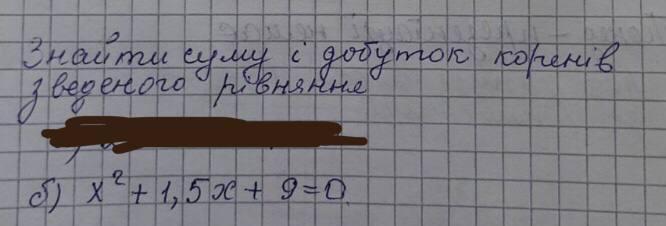 Знайти суму і добуток коренів
зведеного рівняння
б) x² + 1,5x + 9 = 0.